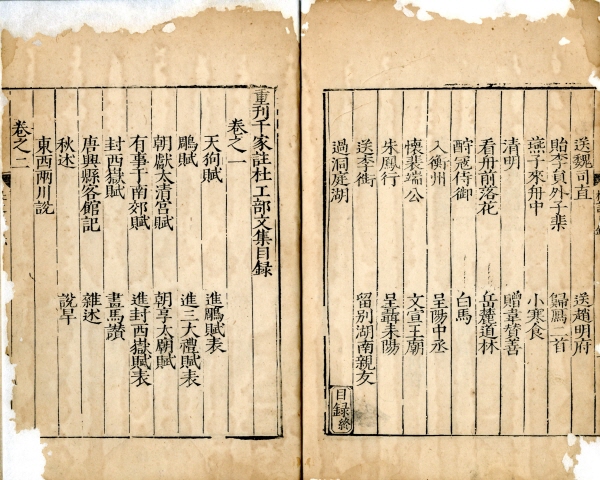 送魏司直　送趙明府
貽李員外子棐　歸鴈二首
燕子來舟中　小寒食
清明　贈韋贊善
看舟前落花　岳麓道林
酧寇侍御　白馬
入衡州　呈陽中丞
懷裴端公　文宣王廟
朱鳳行　呈聶耒陽
送李衘　留別湖南親友
過洞庭湖
目録終
重刊千家註杜工部文集目録
卷之一
天狗賦　進鵰賦表
鵰賦　進三大禮賦表
朝獻太清宮賦　朝享太廟賦
有事于南郊賦　進封西嶽賦表
封西嶽賦　畫馬讚
唐興縣客館記　雜述
秋述　說旱
東西兩川說
卷之二